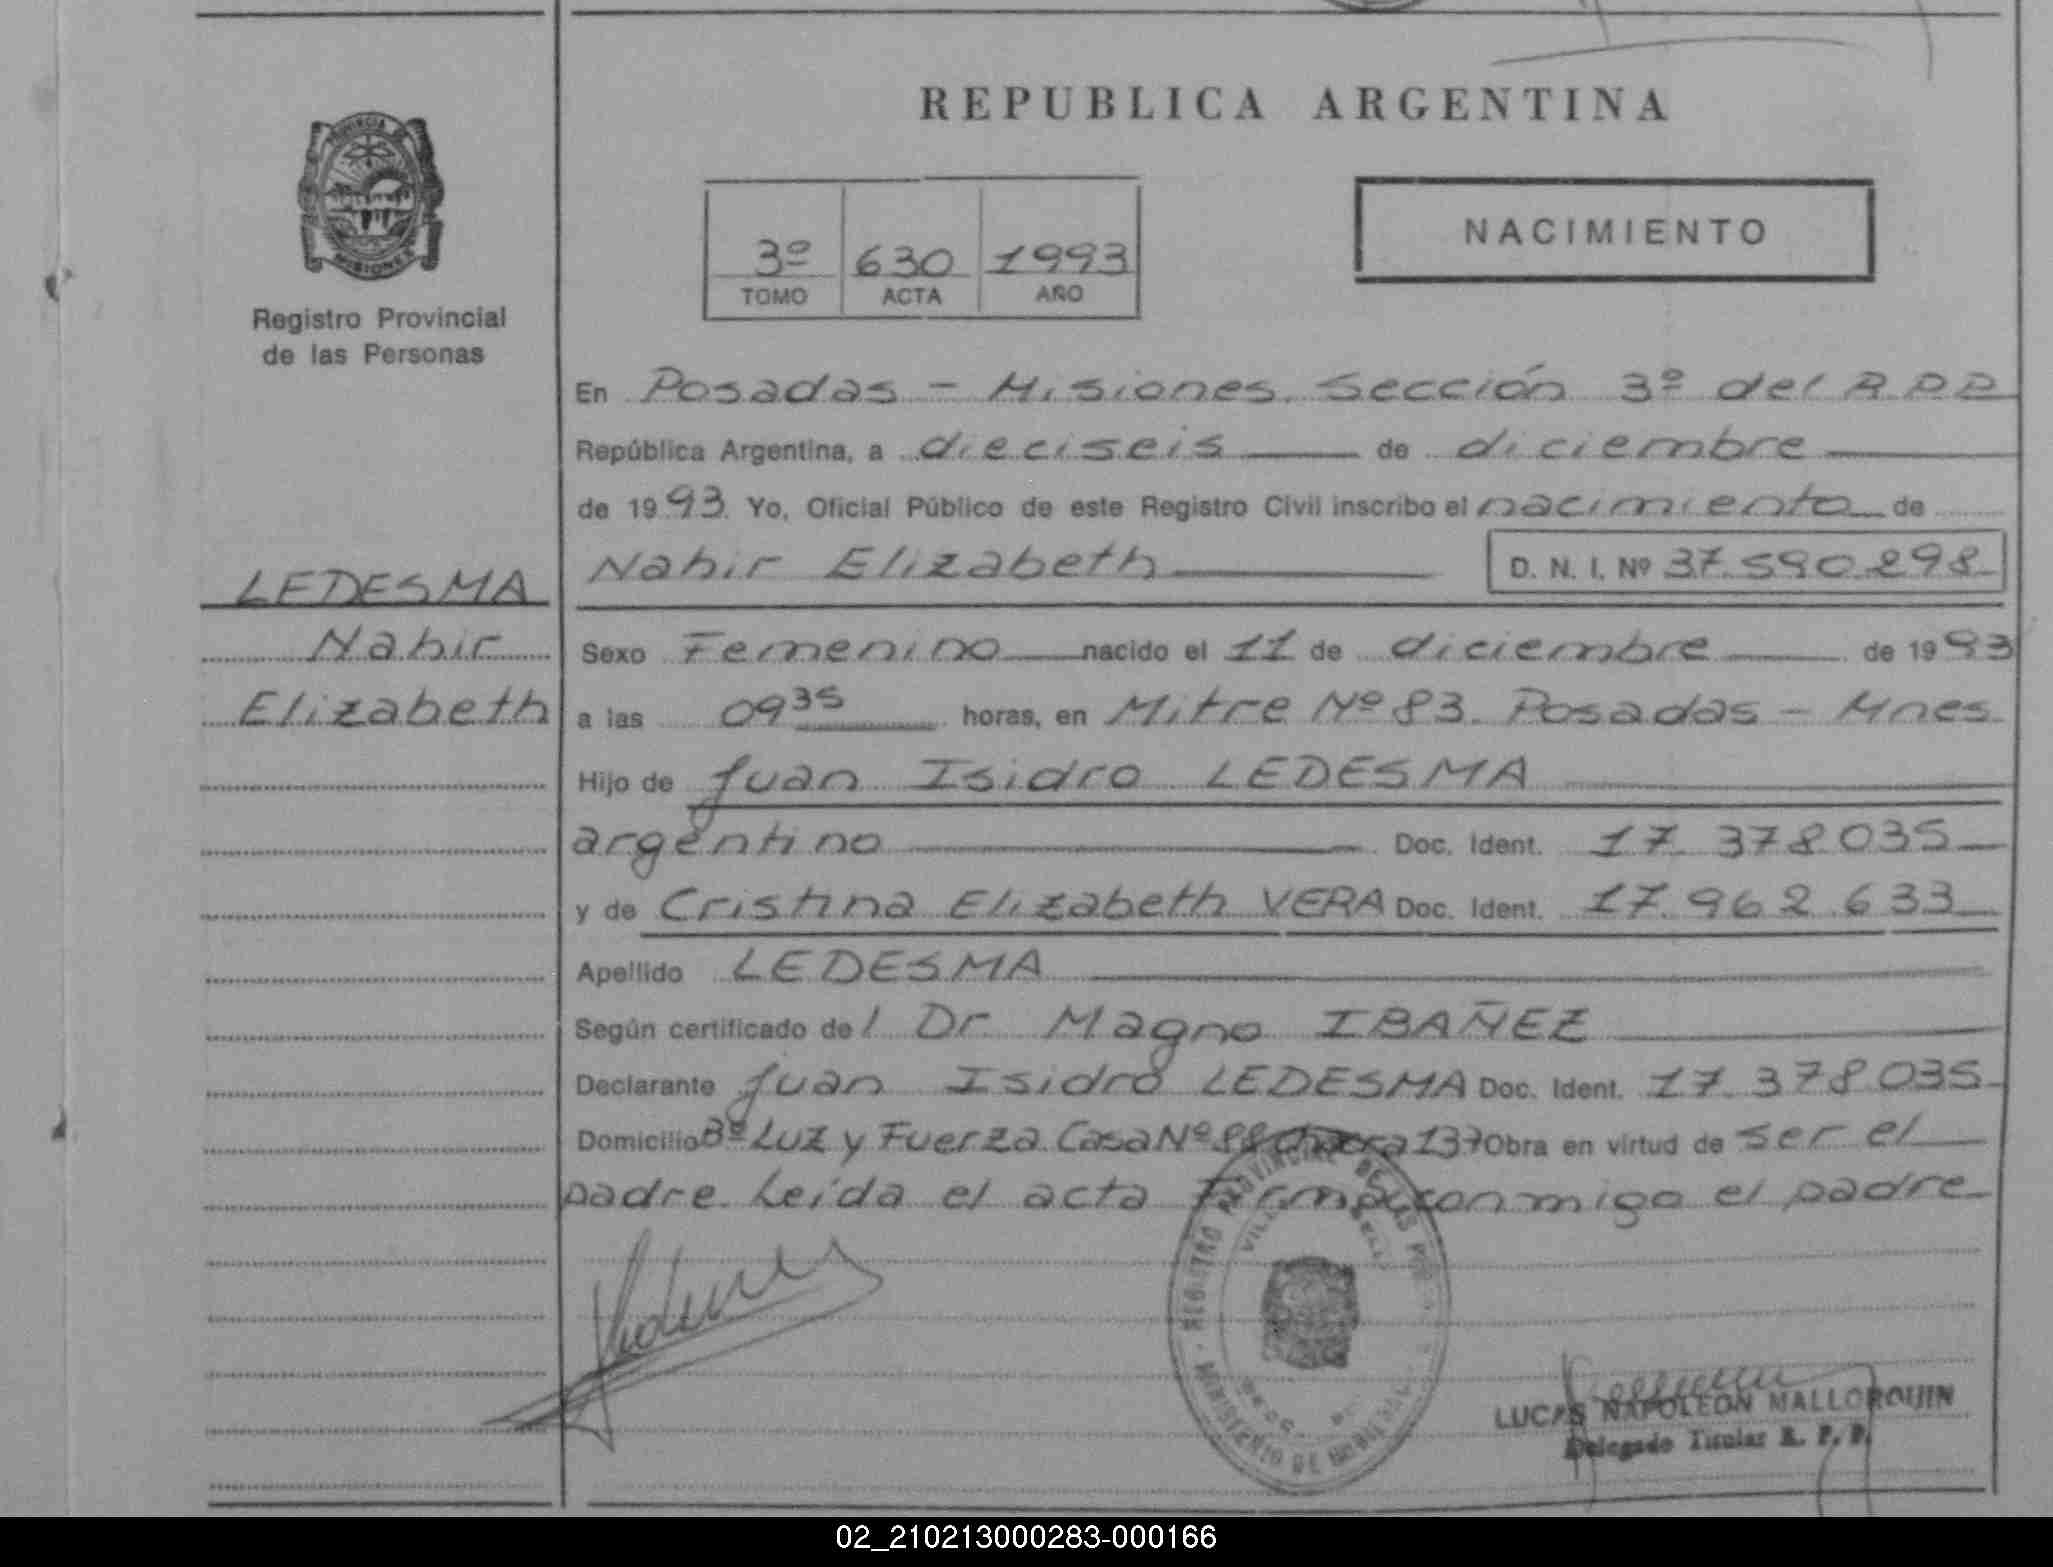 REPUBLICA ARGENTINA
PROVINCIA DE
MISIONES
Registro Provincial
de las Personas
3º 630 1993
TOMO ACTA AÑO
NACIMIENTO
LEDESMA
Nahir
Elizabeth
En Posadas - Misiones. Sección 3º del R.P.P
República Argentina, a dieciseis de diciembre
de 1993. Yo, Oficial Público de este Registro Civil inscribo el nacimiento de
Nahir Elizabeth D. N. I. Nº 37.590.298
Sexo Femenino nacido el 11 de diciembre de 1993
a las 09 35 horas, en Mitre Nº 83. Posadas - Mnes
Hijo de Juan Isidro LEDESMA
argentino Doc. Ident. 17.378.035
y de Cristina Elizabeth VERA Doc. Ident. 17.962.633
Apellido LEDESMA
Según certificado del Dr. Magno IBAÑEZ
Declarante Juan Isidro LEDESMA Doc. Ident. 17.378.035
Domicilio Bº Luz y Fuerza Casa Nº 88 Chacra 137 Obra en virtud de ser el
padre. Leída el acta firma conmigo el padre
REGISTRO PROVINCIAL DE LAS
MINISTERIO DE GOBIERNO
LUCAS NAPOLEON MALLORQUIN
Delegado Titular R. P. P.
02_210213000283-000166